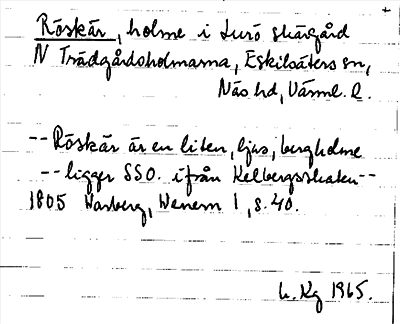 Röskär, holme i Lurö skärgård
N Trädgårdsholmarna, Eskilsäters sn,
Näs hd, Värml. l.
-- Röskär är en liten, ljus, bergholme
-- ligger SSO. ifrån Kelbergsskaten --
1805 Warberg, Wenern 1, s. 40.
G. Kg 1965.